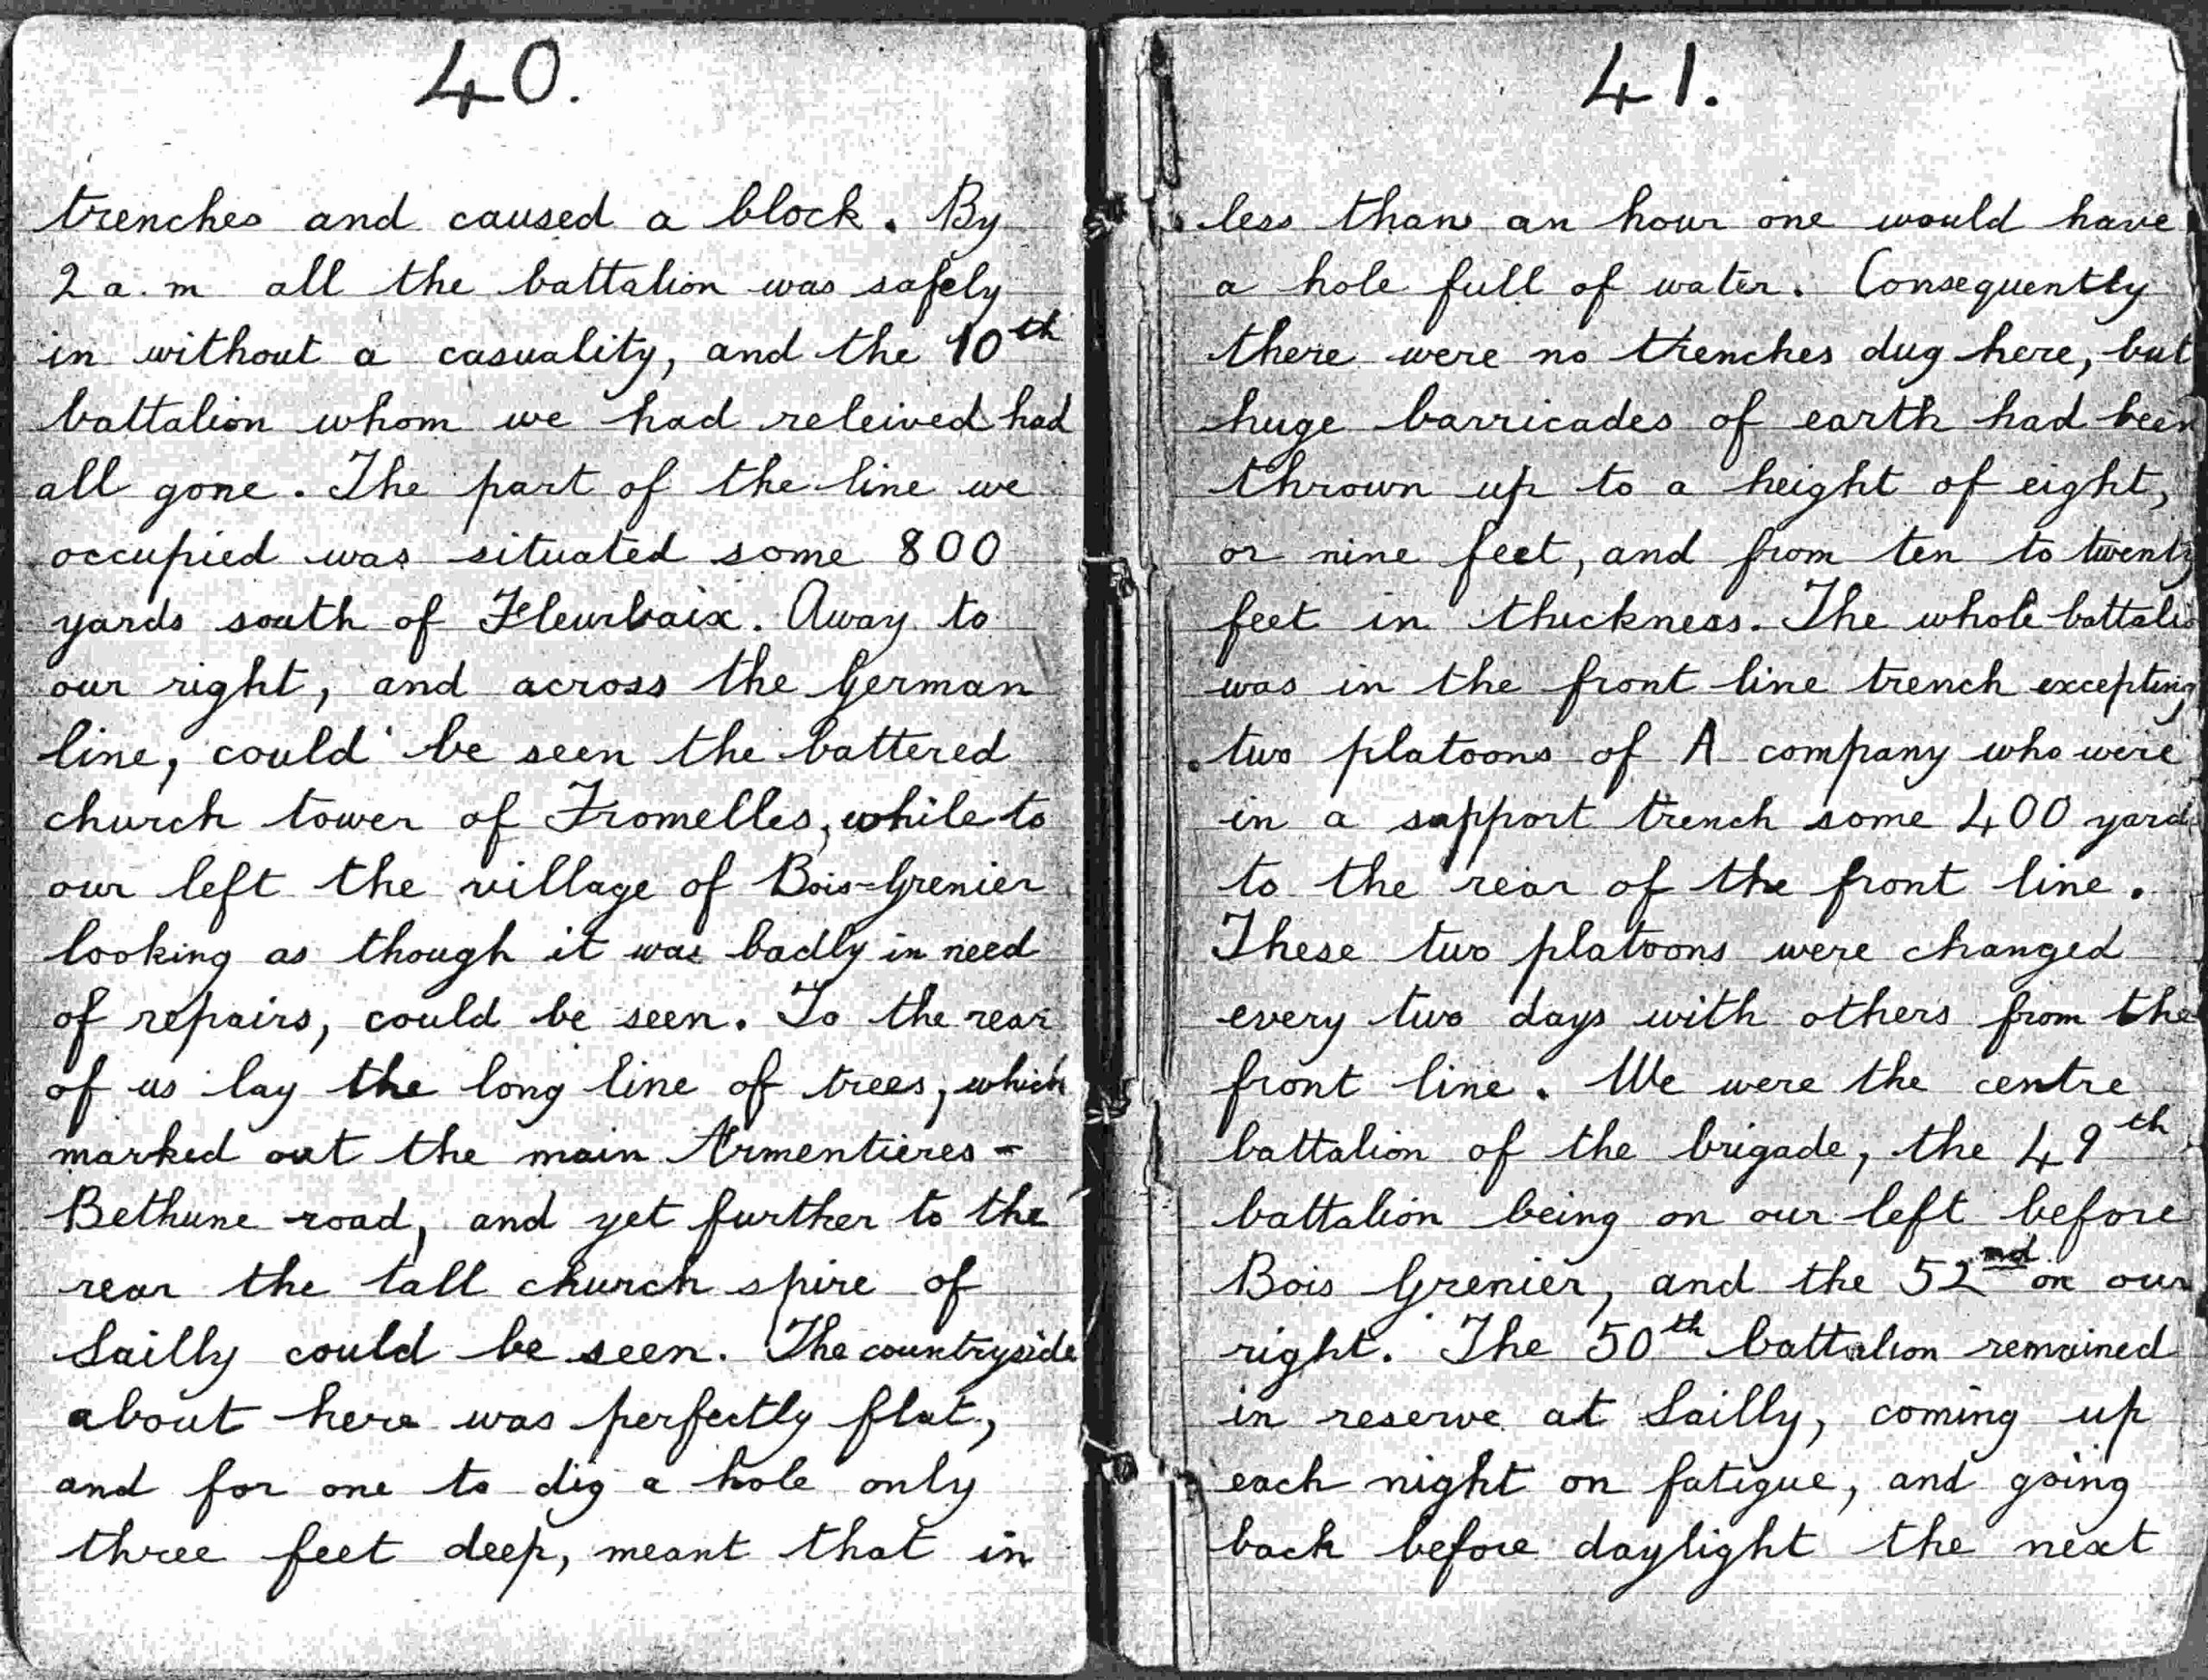 40.
trenches and caused a block. By
2 a.m all the battalion was safely
in without a casuality, and the 10th
battalion whom we had releived had
all gone. The part of the line we
occupied was situated some 800
yards south of Fleurbaix. Away to
our right, and across the German
line, could be seen the battered
church tower of Fromelles, while to
our left the village of Bois-Grenier
looking as though it was badly in need
of repairs, could be seen. To the rear
of us lay the long line of trees, which
marked out the main Armentieres -
Bethune road, and yet further to the
rear the tall church spire of
Sailly could be seen. The countryside
about here was perfectly flat,
and for one to dig a hole only
three feet deep, meant that in
41.
less than an hour one would have
a hole full of water. Consequently
there were no trenches dug here, but
huge barricades of earth had been
thrown up to a height of eight,
or nine feet, and from ten to twenty
feet in thickness. The whole battalio
was in the front line trench excepting
two platoons of A company who were
in a support trench some 400 yards
to the rear of the front line.
These two platoons were changed
every two days with others from the
front line. We were the centre
battalion of the brigade, the 49th
battalion being on our left before
Bois Grenier, and the 52nd on our
right. The 50th battalion remained
in reserve at Sailly, coming up
each night on fatigue, and going
back before daylight the next